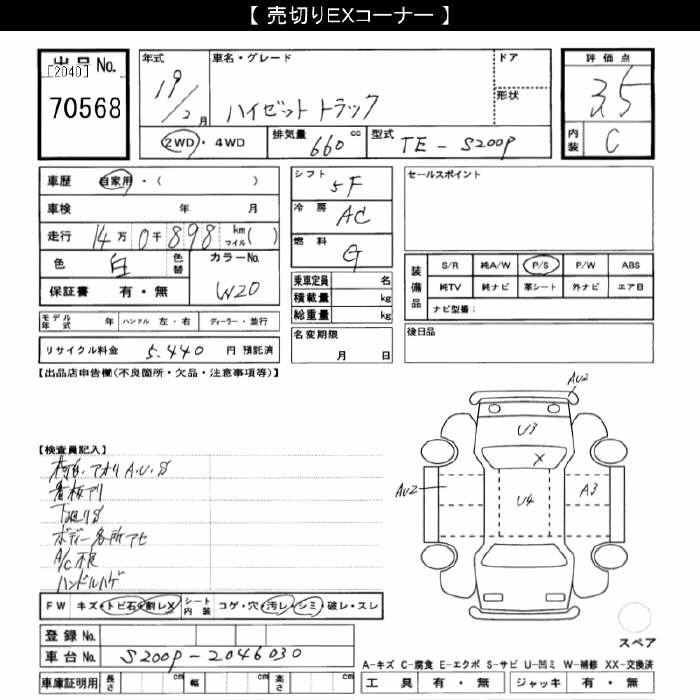 【 売切りEXコーナー 】
出品 No.
[2040]
70568
年式
19/2月
車名・グレード
ハイゼット トラック
ドア
形状
2WD ・ 4WD
排気量 660 cc
型式 TE - S200P
評価点
3.5
内装 C
車歴 自家用・( )
車検 年 月
走行 14万0千898 km マイル( )
色 白 色替
カラーNo. W20
保証書 有・無
モデル年式 年 ハンドル 左・右 ディーラー・並行
リサイクル料金 5,440 円 預託済
シフト 5F
冷房 AC
燃料 G
乗車定員 名
積載量 kg
総重量 kg
名変期限
月 日
セールスポイント
装備品
S/R 純A/W P/S P/W ABS
純TV 純ナビ 革シート 外ナビ エアB
ナビ型番：
後日品
【出品店申告欄(不良箇所・欠品・注意事項等)】
【検査員記入】
アオリ A.U.S
看板アリ
下廻りS
ボディー各所アセ
A/C不良
ハンドルハゲ
AU2
U3
X
AU2
U4
A3
FW キズ・トビ石・割レX シート内装 コゲ・穴・汚レ・シミ・破レ・スレ
登録 No.
車台 No. S200P-2046030
車庫証明用 長さ cm 幅 cm 高さ cm
スペア
A-キズ C-腐食 E-エクボ S-サビ U-凹ミ W-補修 XX-交換済
工具 有・無 ジャッキ 有・無